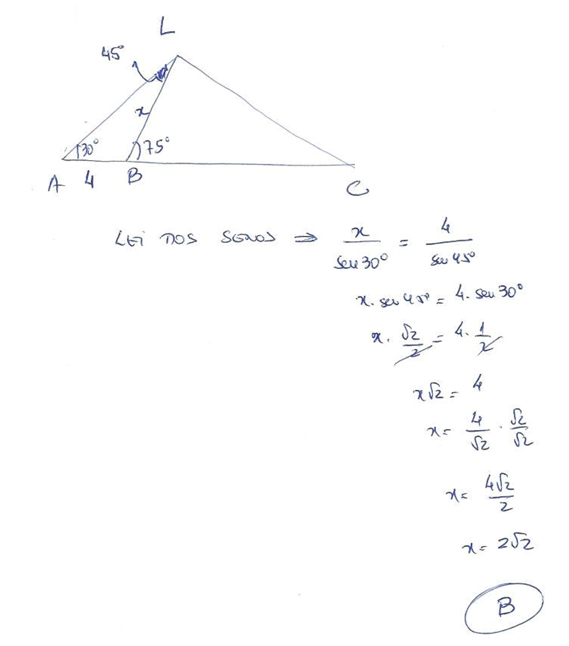 L
45°
x
30°
75°
A 4 B
C
LEI DOS SENOS ⇒ x/sen 30° = 4/sen 45°
x. sen 45° = 4. sen 30°
x. √2/2 = 4. 1/2
x√2 = 4
x = 4/√2 . √2/√2
x = 4√2/2
x = 2√2
B